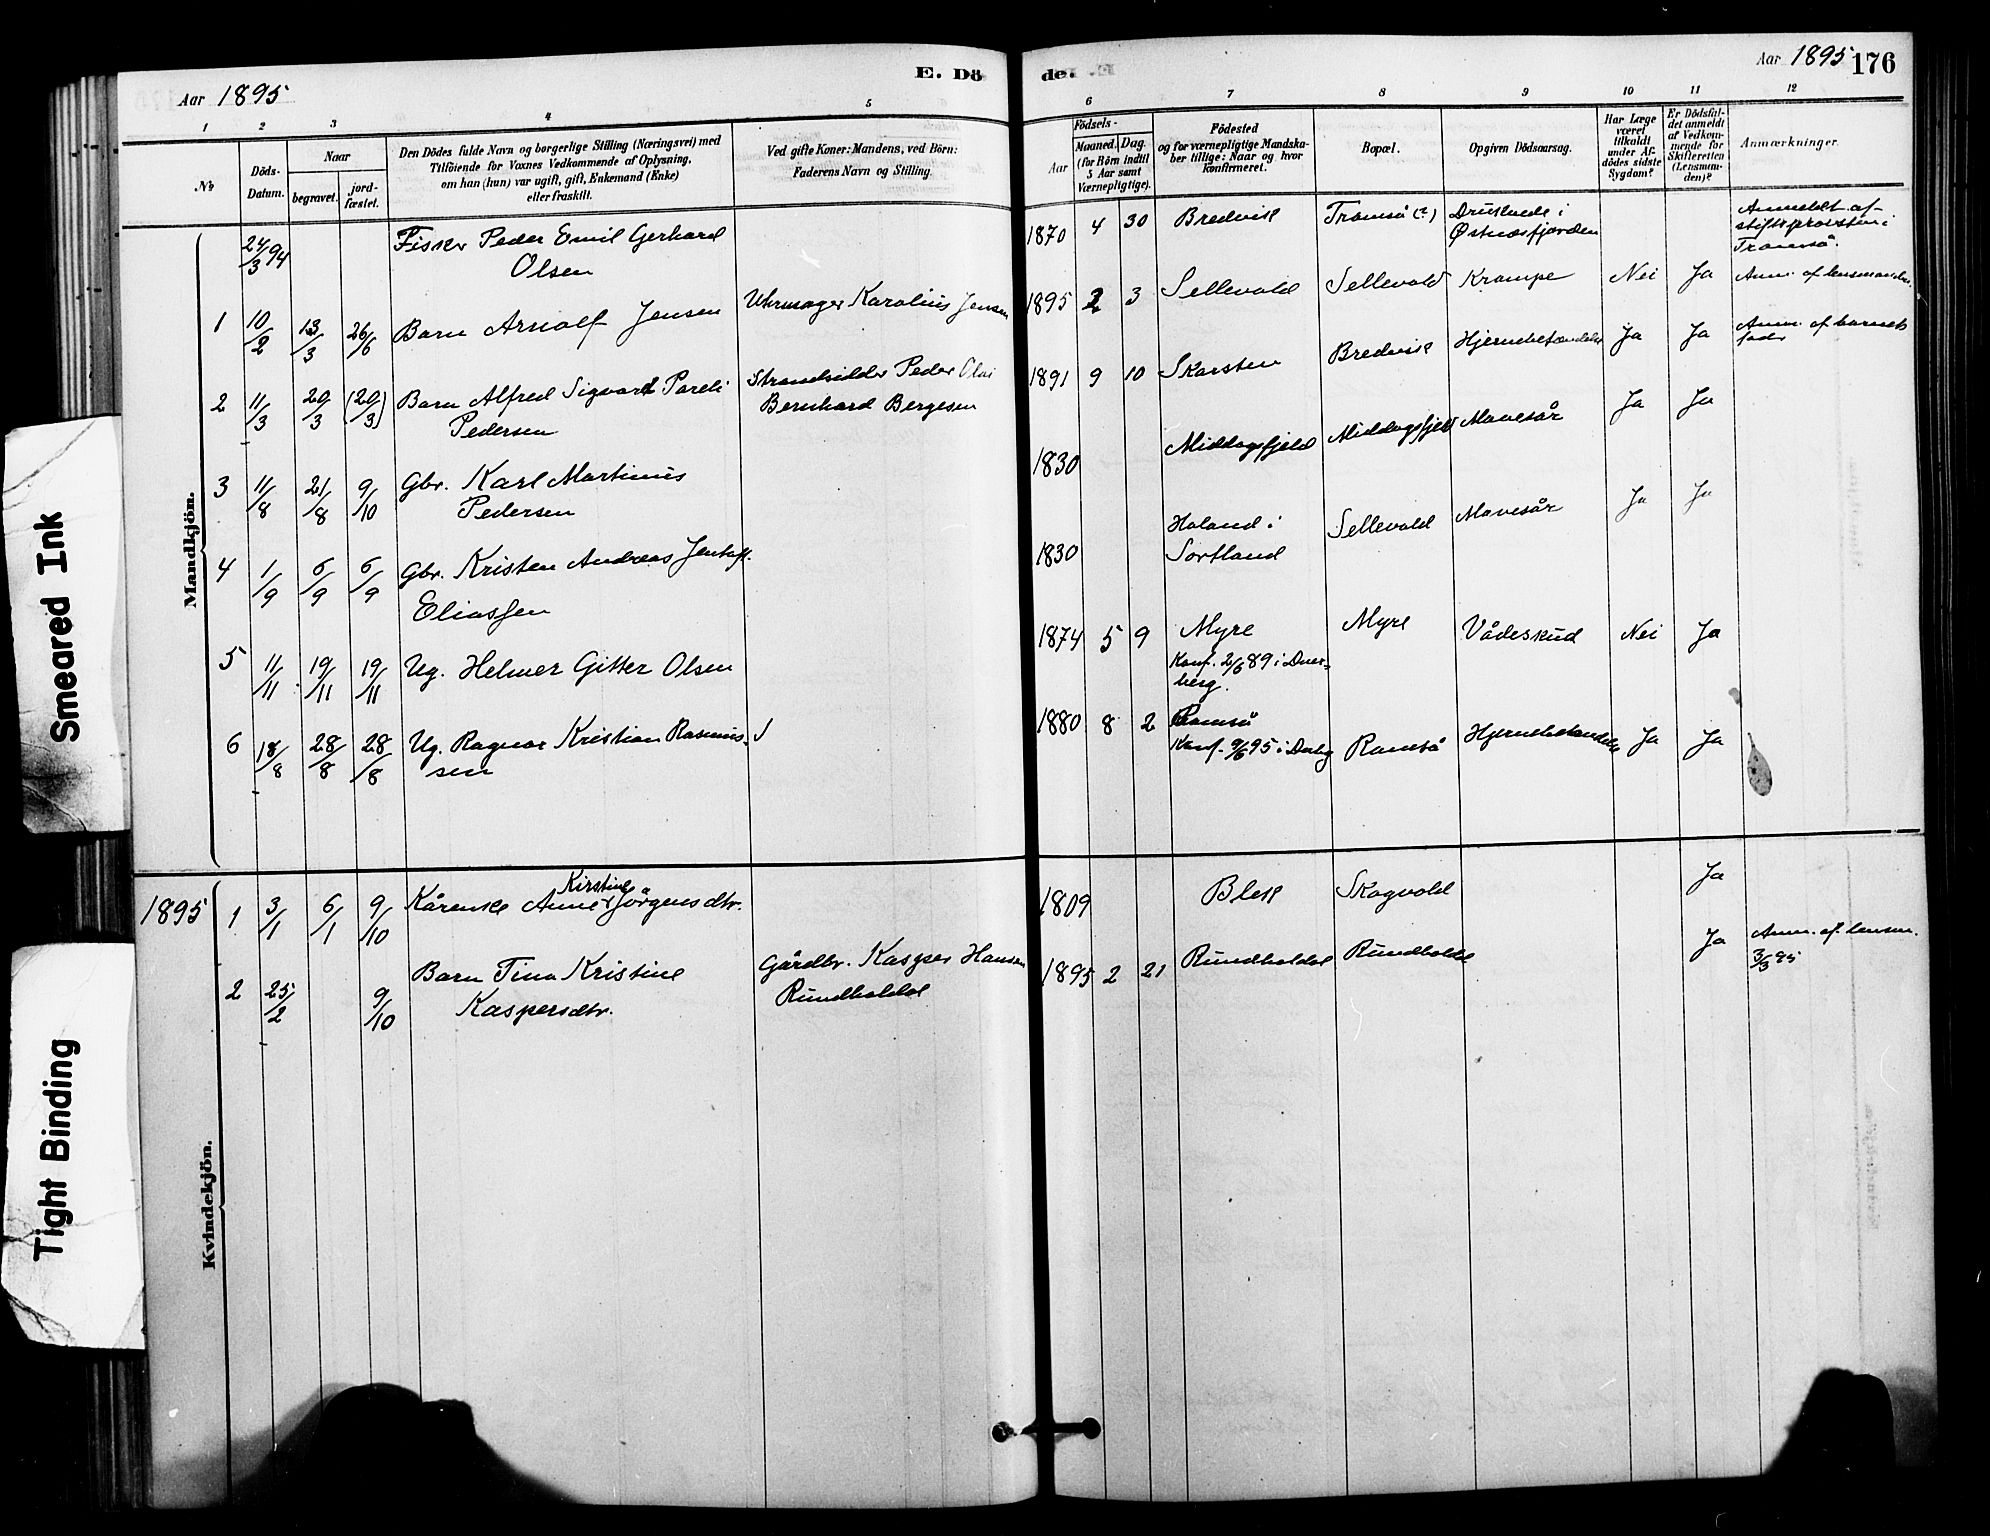 Aar 1895
E. Dö
1 2 3 4 5
№
Döds-
Datum.
Naar
begravet.
jord-
fæstet.
Den Dödes fulde Navn og borgerlige Stilling (Næringsvei) med
Tilföiende for Voxnes Vedkommende af Oplysning,
om han (hun) var ugift, gift, Enkemand (Enke)
eller fraskilt.
Ved gifte Koner: Mandens, ved Börn:
Faderens Navn og Stilling.
Mandkjön.
24/3 94 Fisker Peder Emil Gerhard
Olsen
1 10/2 13/3 26/6 Barn Arnolf Jensen Uhrmager Karolius Jensen
2 11/3 20/3 (20/3) Barn Alfred Sigvard Pareli Strandsidder Peder Olai
Pedersen Bernhard Bergesen
3 11/8 21/8 9/10 Gbr. Karl Martinus
Pedersen
4 1/9 6/9 6/9 Gbr. Kristen Andreas Jentoft
Eliassen
5 11/11 19/11 19/11 Ug. Helmer Gitter Olsen
6 18/8 28/8 28/8 Ug. Ragnar Kristian Rasmus-
sen
Kvindekjön.
Kirstine
1895 1 3/1 6/1 9/10 Kårenke Anne Jörgensdtr.
2 25/2 9/10 Barn Tina Kristine Gårdbr. Kasper Hansen
Kaspersdtr. Rundholdet
de.
Aar 1895 176
6 7 8 9 10 11 12
Födsels-
Aar
Maaned. Dag.
(for Börn indtil
5 Aar samt
Værnepligtige).
Födested
og for værnepligtige Mandska-
ber tillige: Naar og hvor
konfirmeret.
Bopæl.
Opgiven Dödsaarsag.
Har Læge
været
tilkaldt
under Af-
dödes sidste
Sygdom?
Er Dödsfal-
det anmeldt
af Vedkom-
mende for
Skifteretten
(Lensman-
den)?
Anmærkninger.
1870 4 30 Bredvik Tromsö (?) Druknede i
Østnæsfjorden
Anmeldt af
stiftsprovsten i
Tromsö.
1895 2 3 Sellevold Sellevold Krampe Nei Ja Anm. af lensmanden.
1891 9 10 Skarsten Bredvik Hjernebetændelse Ja Ja Anm. af barnets
fader
1830 Middagsfjeld Middagsfjeld Mavesår Ja Ja
1830 Holand i
Sortland Sellevold Mavesår Ja Ja
1874 5 9 Myre Myre Vådeskud Nei Ja
Konf. 2/6 89 i Dver-
berg.
1880 8 2 Ramså
Konf. 9/6 95 i Dvbg Ramså Hjernebetændelse Ja Ja
1809 Bleik Skogvold Ja
1895 2 21 Rundholdet Rundholdet Ja Anm. af lensm.
3/3 95
Smeared Ink
Tight Binding